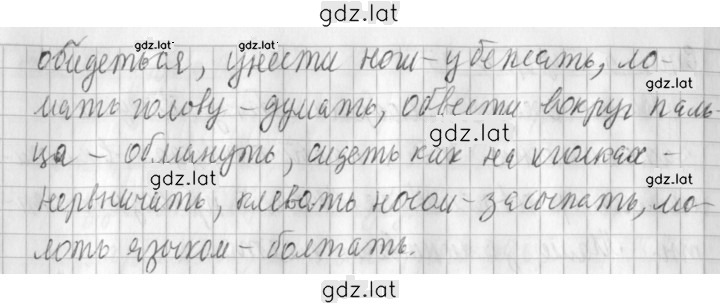 gdz.lat
gdz.lat gdz.lat
обидеться, унести ноги – убежать, ло-
gdz.lat
мать голову – думать, обвести вокруг паль-
gdz.lat
ца – обмануть, сидеть как на иголках –
gdz.lat gdz.lat
нервничать, клевать носом – засыпать, мо-
лоть языком – болтать.
gdz.lat